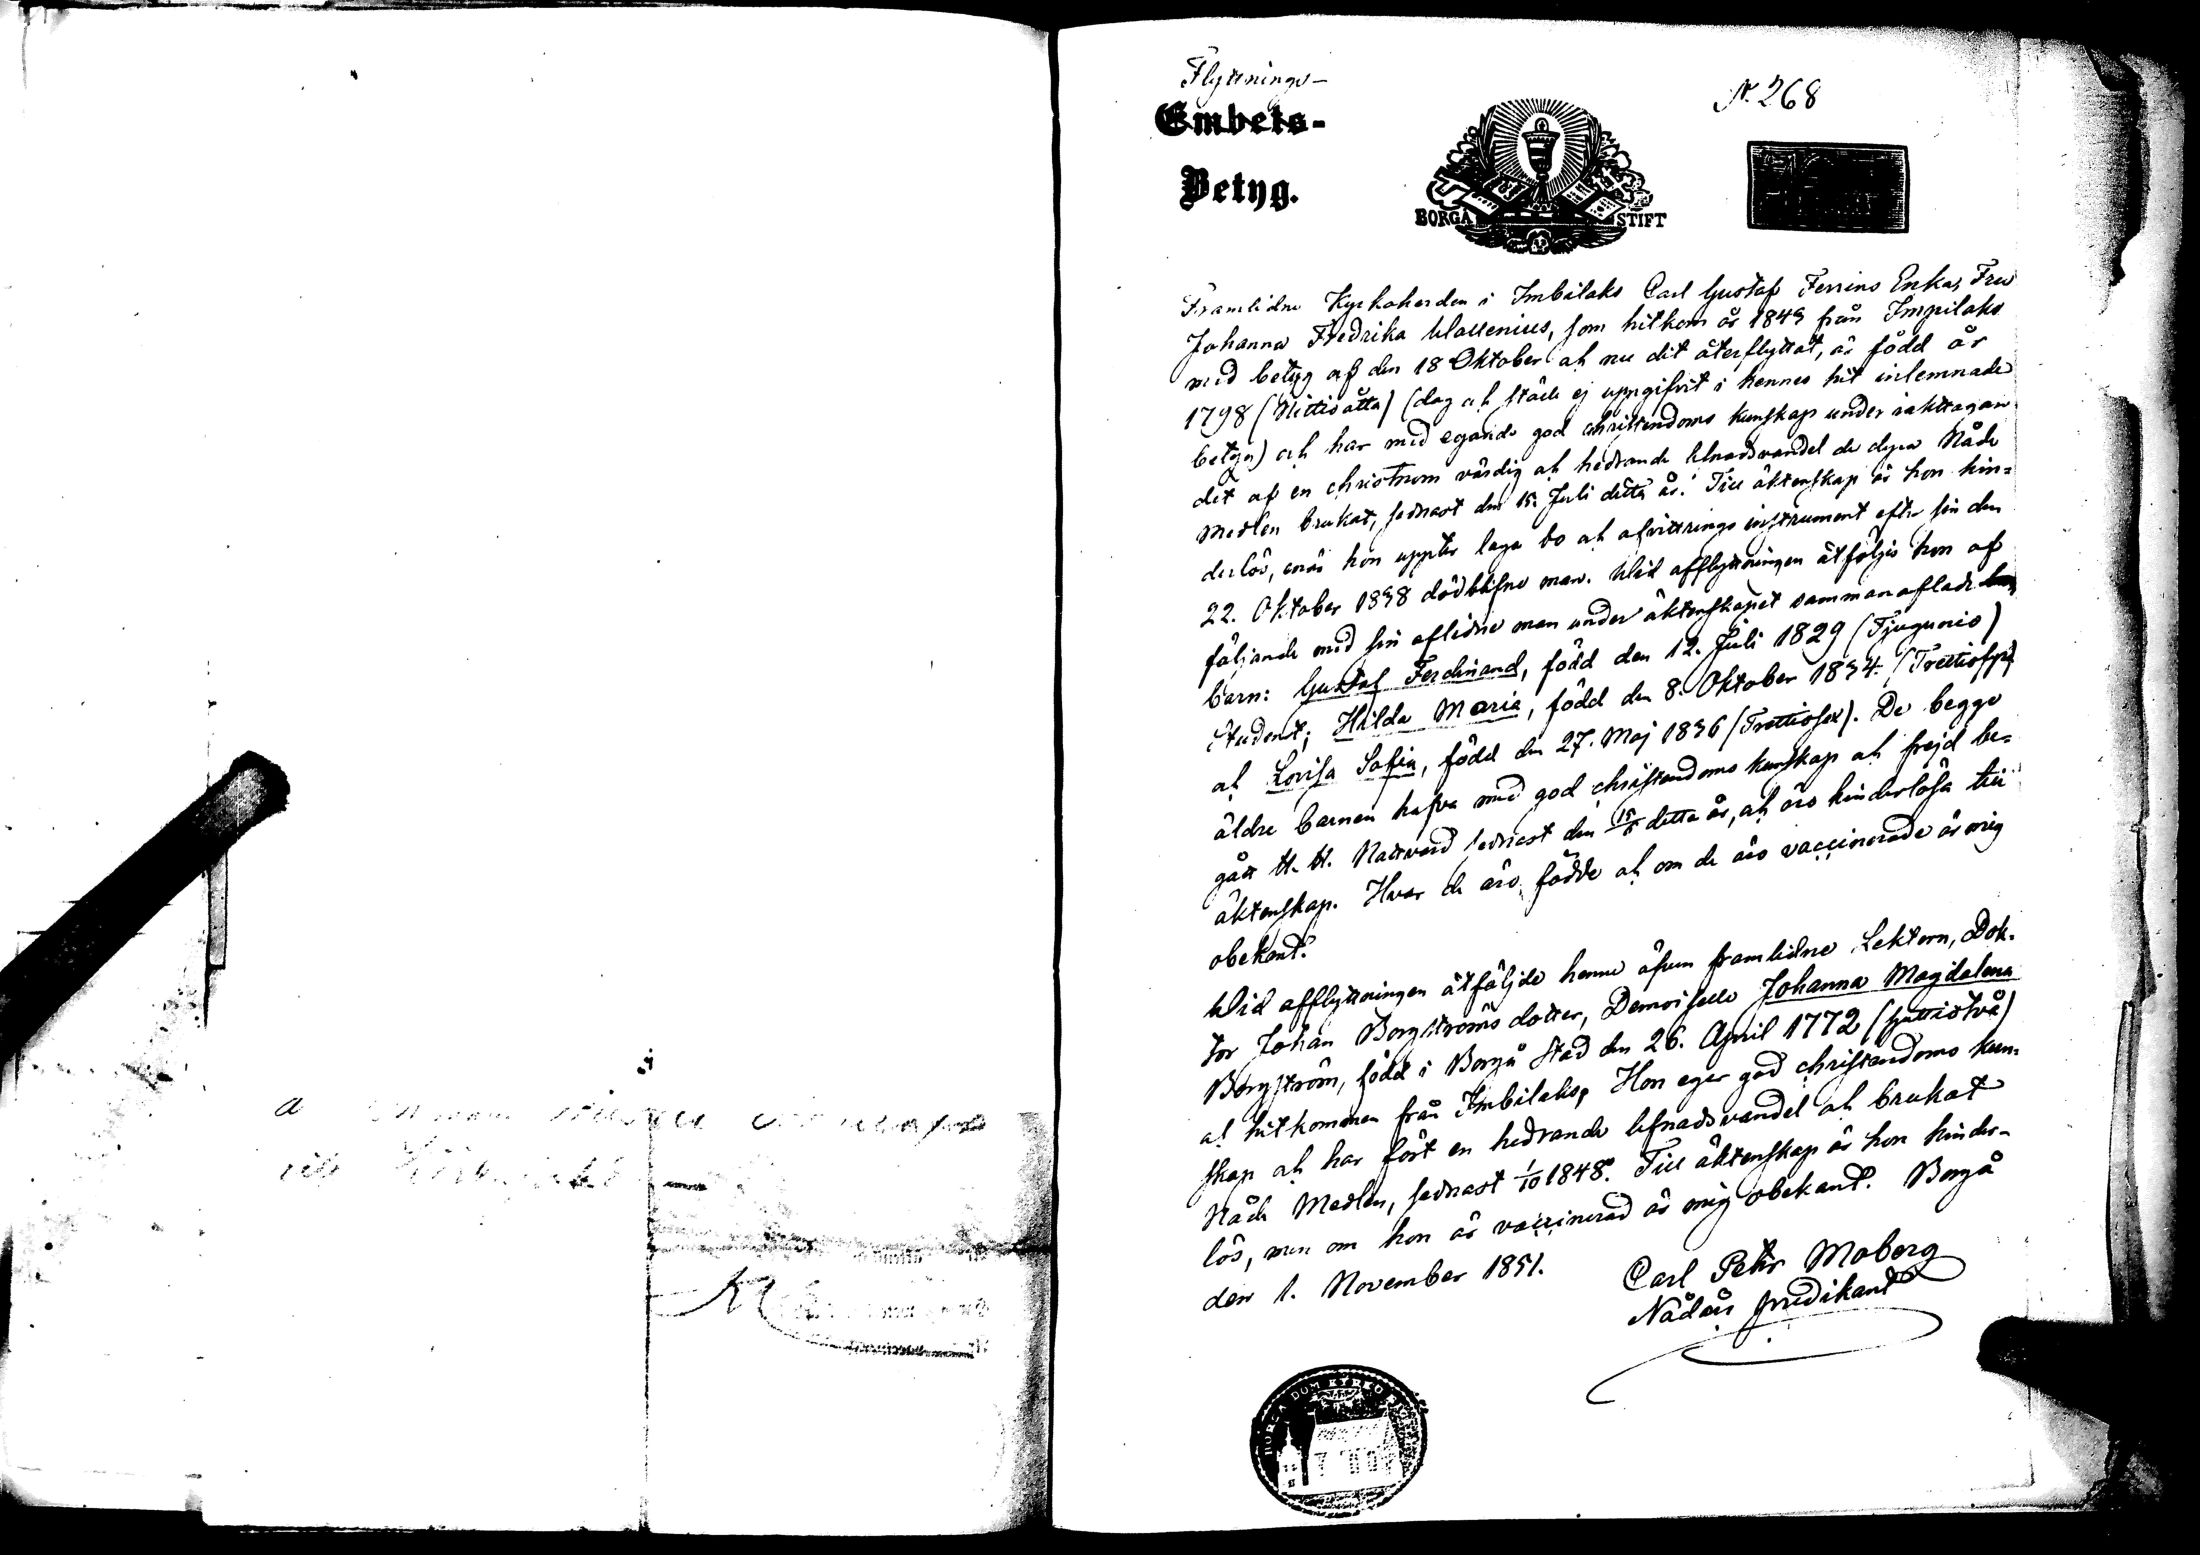 Flyttnings-
N. 268
Embets-
Betyg.
BORGÅ STIFT
Framlidne Kyrkoherden i Imbilaks Carl Gustaf Ferrins Enka, Fru
Johanna Fredrika Wallenius, som hitkom år 1849 från Impilaks
med betyg af den 18 Oktober ah nu dit återflyttat, är född år
1798 (Nittioåtta) (dag ah ställe ej uppgifvit i hennes hit inlemnade
betyg) ah har med egande god christendoms kunskap under iakttagan
det af en christnom värdig ah hedrande lefnadsvandel de dyra Nåde
Medlen brukat, sednast den 15. Juli detta år. Till äktenskap är hon hin=
derlös, enär hon uppter laga bo ah afvittrings instrument efter sin den
22. Oktober 1838 dödblifne man. Wid afflyttningen åtföljes hon af
följande med sin aflidne man under äktenskapet sammanaflade
barn: Gustaf Ferdinand, född den 12. Juli 1829 (Tjugunio)
Student; Hilda Maria, född den 8. Oktober 1834. (Trettiofyra)
ah Lovisa Sofia, född den 27. Maj 1836 (Trettiosex). De begge
äldre barnen hafva med god christendoms kunskap ah frejd be=
gått H. H. Nattvard sednast den detta år, ah äro hinderlösa till
äktenskap. Hvar de äro födde ah om de äro vaccinerade är mig
obekant.
Wid afflyttningen åtföljde henne äfven framlidne Lektorn, Dok-
tor Johan Borgströms dotter, Demoiselle Johanna Magdalena
Borgström, född i Borgå stad den 26. April 1772 (Sjuttiotvå)
ah hitkommen från Imbilaks, Hon eger god christendoms kun-
skap ah har fört en hedrande lefnadsvandel ah brukat
Nåde Medlen, sednast 1/10 1848. Till äktenskap är hon hinder-
lös, men om hon är vaccinerad är mig obekant. Borgå
den 1. November 1851.
Carl Petter Moberg
Nådårs predikant
BORGÅ DOM KYRKO